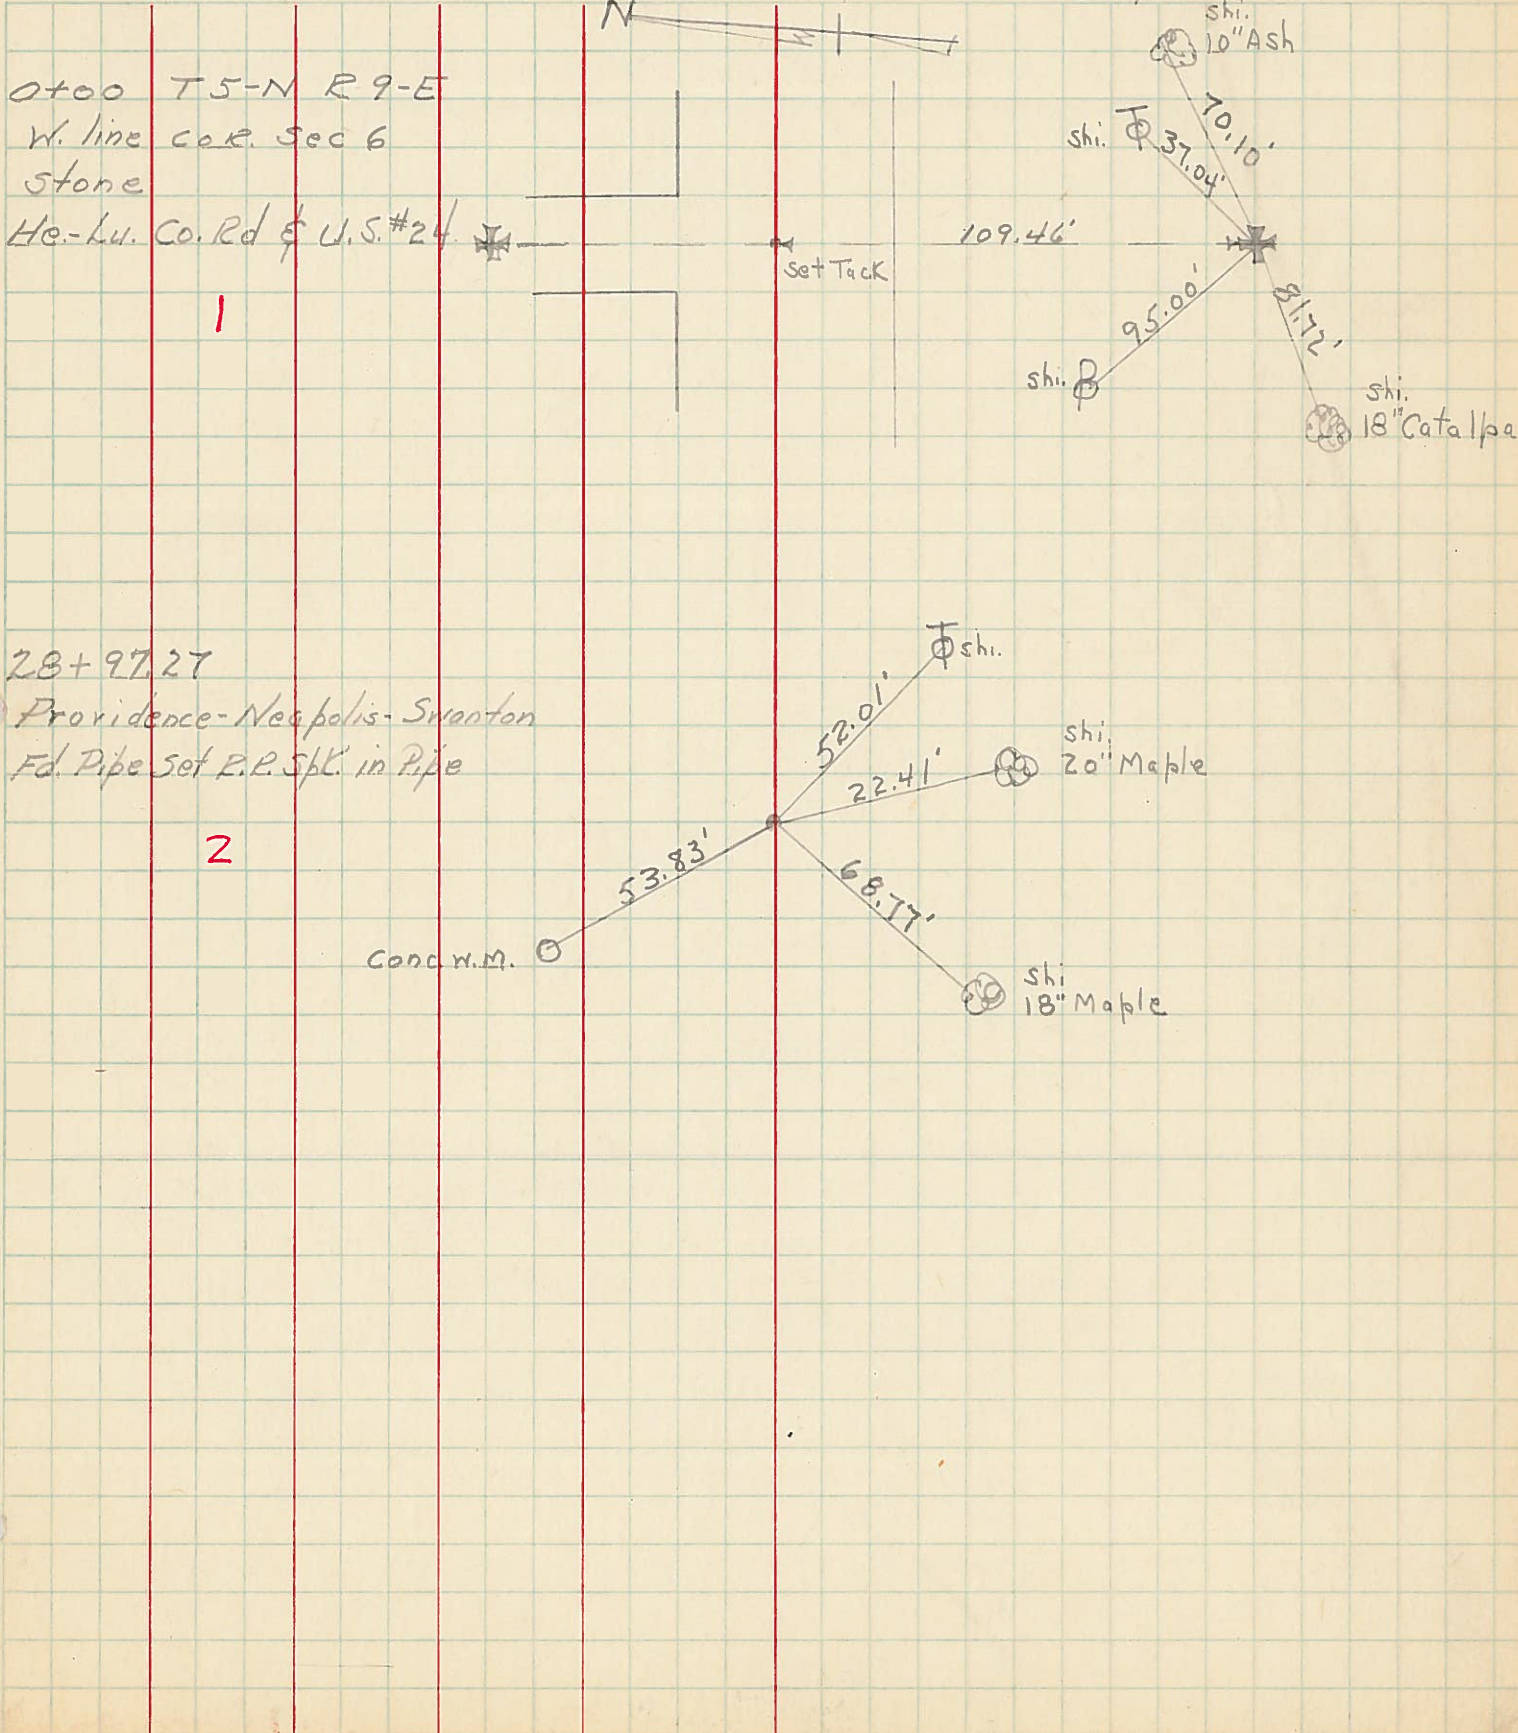 N
shi.
10" Ash
0+00 T5-N R9-E
W. line cor. Sec 6
Stone
He.-Lu. Co. Rd & U.S. #24
1
70.10'
shi.
37.04'
109.46'
set Tack
95.00'
81.72'
shi.
shi.
18" Catalpa
28+97.27
Providence-Neapolis-Swanton
Fd. Pipe Set R.R. Spk. in Pipe
2
shi.
52.01'
22.41'
shi.
20" Maple
53.83'
68.77'
Conc. W.M.
shi
18" Maple